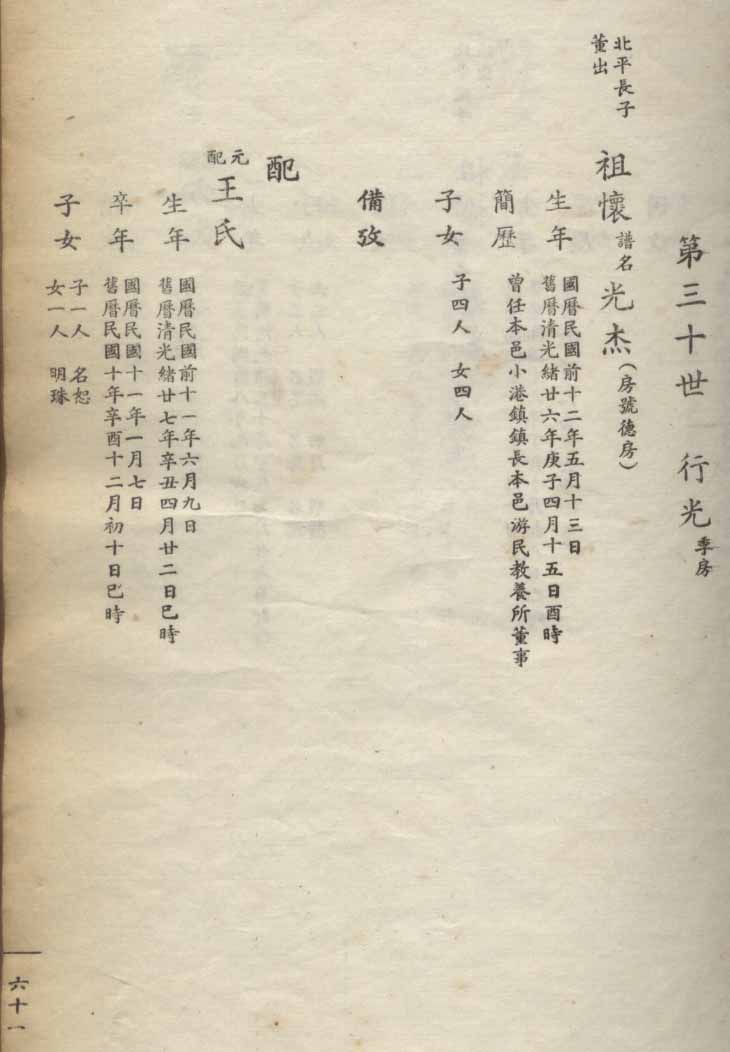 第三十世 行光 季房
北平長子
董出
祖懷 譜名 光杰（房號德房）
生年
國曆民國前十二年五月十三日
舊曆清光緒廿六年庚子四月十五日酉時
簡歷 曾任本邑小港鎮鎮長本邑游民教養所董事
子女 子四人 女四人
備攷
配
元配 王氏
生年
國曆民國前十一年六月九日
舊曆清光緒廿七年辛丑四月廿二日巳時
卒年
國曆民國十一年一月七日
舊曆民國十年辛酉十二月初十日巳時
子女
子一人 名恕
女一人 明珠
六十一